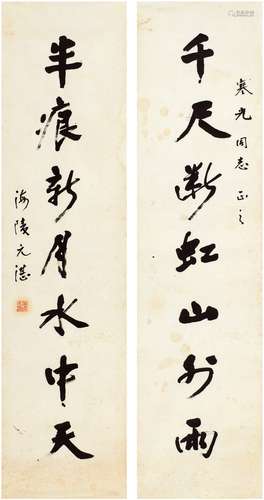 寒光同志正之
千尺断虹山外雨
半痕新月水中天
海陵元湛